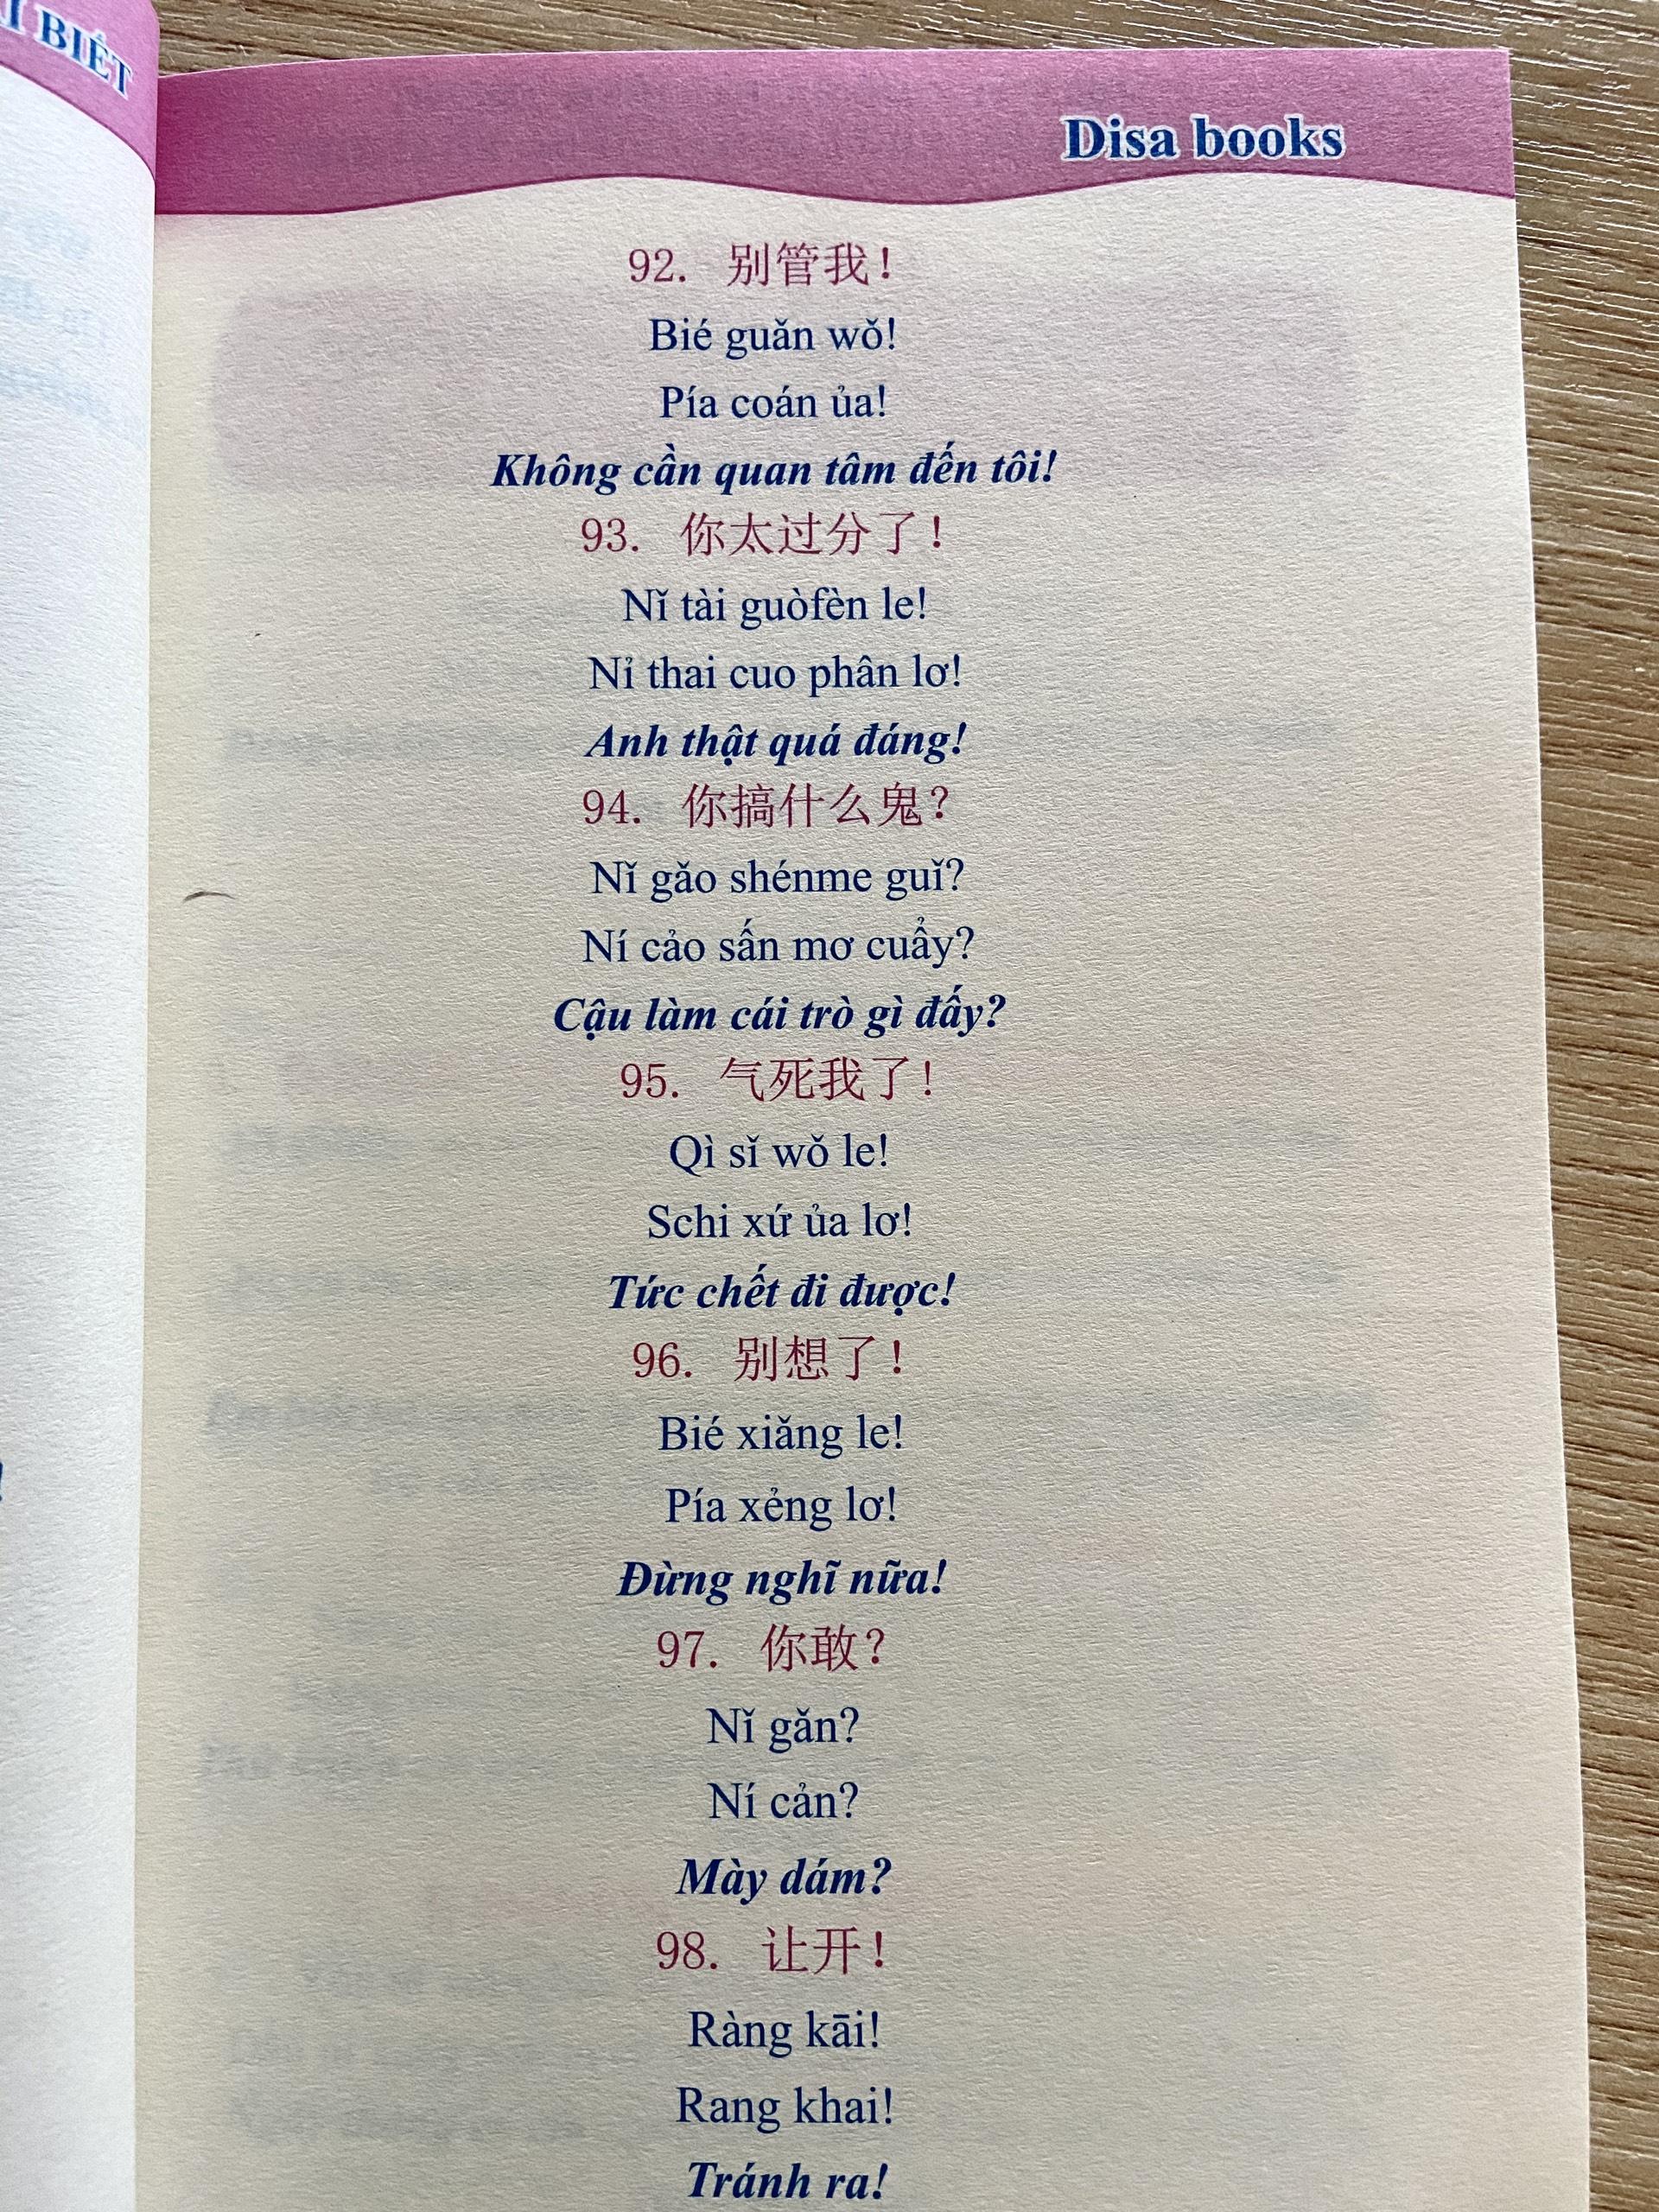 BIẾT
Disa books
92. 别管我！
Bié guǎn wǒ!
Pía coán ủa!
Không cần quan tâm đến tôi!
93. 你太过分了！
Nǐ tài guòfèn le!
Nỉ thai cuo phân lơ!
Anh thật quá đáng!
94. 你搞什么鬼？
Nǐ gǎo shénme guǐ?
Ní cảo sấn mơ cuẩy?
Cậu làm cái trò gì đấy?
95. 气死我了！
Qì sǐ wǒ le!
Schi xứ ủa lơ!
Tức chết đi được!
96. 别想了！
Bié xiǎng le!
Pía xẻng lơ!
Đừng nghĩ nữa!
97. 你敢？
Nǐ gǎn?
Ní cản?
Mày dám?
98. 让开！
Ràng kāi!
Rang khai!
Tránh ra!